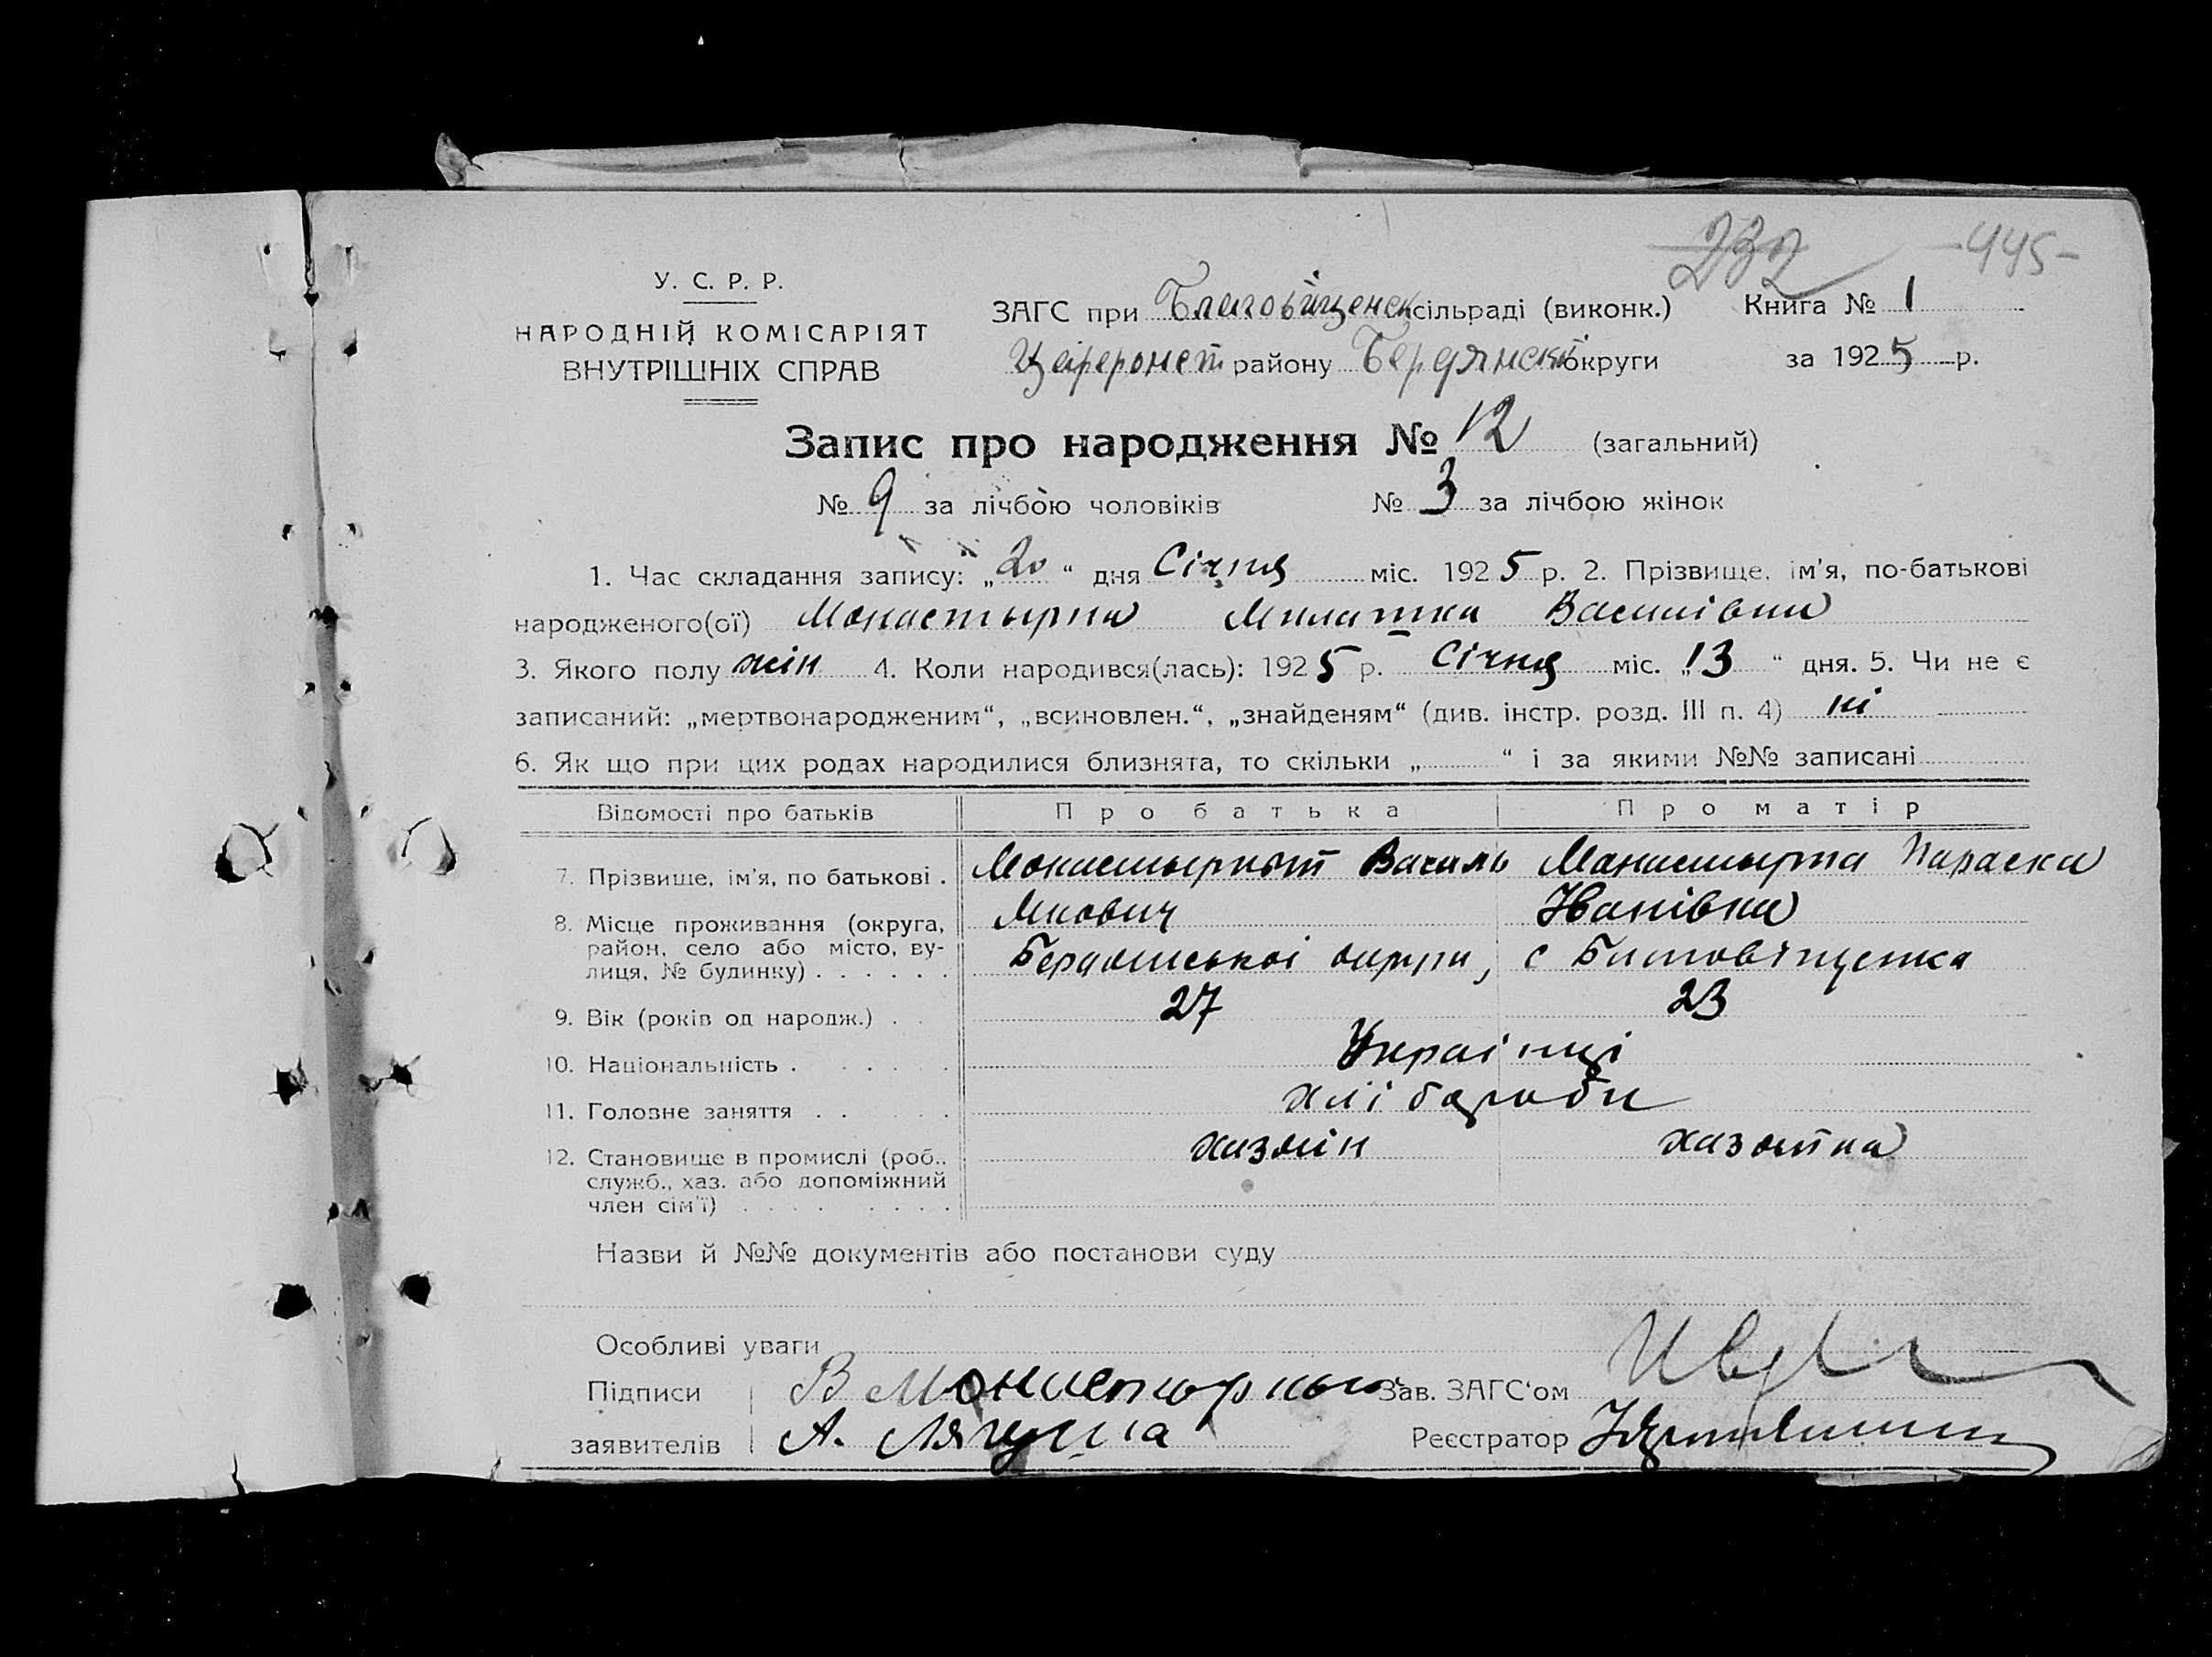 232 -445-
У. С. Р. Р.
НАРОДНІЙ КОМІСАРІЯТ
ВНУТРІШНІХ СПРАВ
ЗАГС при Благовіщенск сільраді (виконк.) Книга № 1
району Бердянськ округи за 1925 р.
Запис про народження № 12 (загальний)
№ 9 за лічбою чоловіків № 3 за лічбою жінок
1. Час складання запису: „20“ дня Січня міс. 1925 р. 2. Прізвище, ім'я, по-батькові
народженого(ої) Монастырна Милашка Василівна
3. Якого полу жін 4. Коли народився(лась): 1925 р. Січня міс. „13“ дня. 5. Чи не є
записаний: „мертвонародженим“, „всиновлен.“, „знайденям“ (див. інстр. розд. III п. 4) ні
6. Як що при цих родах народилися близнята, то скільки „ “ і за якими №№ записані
Відомості про батьків Про батька Про матір
7. Прізвище, ім'я, по батькові . Василь Монастырна Параска
Іванівна
8. Місце проживання (округа,
район, село або місто, ву-
лиця, № будинку) . . . . . . Бердянськоі округи, с Благовіщенка
9. Вік (років од народж.) . . 27 23
10. Національність . . . . . . Украінці
11. Головне заняття . . . . хліборोби
12. Становище в промислі (роб.,
служб., хаз. або допоміжний
член сім'ї) . . . . . . . . хазяін хазяйка
Назви й №№ документів або постанови суду
Особливі уваги
Підписи В Монастырный Зав. ЗАГС'ом
заявителів А. Лягуша Реєстратор